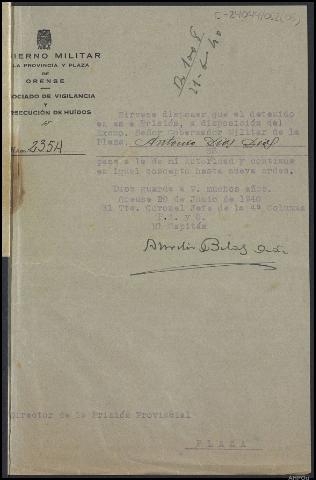 C-24044/002(05)
Bitacol
21-6-40
BIERNO MILITAR
LA PROVINCIA Y PLAZA
DE
ORENSE
OCIADO DE VIGILANCIA
Y
RSECUCIÓN DE HUÍDOS
Núm. 2354
Sirvase disponer que el detenido
en esa Prisión, a disposición del
Excmo. Señor Gobernador Militar de la
Plaza, Antonio Dios Dios
pase a la de mi Autoridad y continue
en igual concepto hasta nueva orden.
Dios guarde a V. muchos años.
Orense 20 de Junio de 1940
El Tte. Coronel Jefe de la 4ª Columna
P.I. y O.
El Capitán
Director de la Prisión Provincial
PLAZA
AHPOu